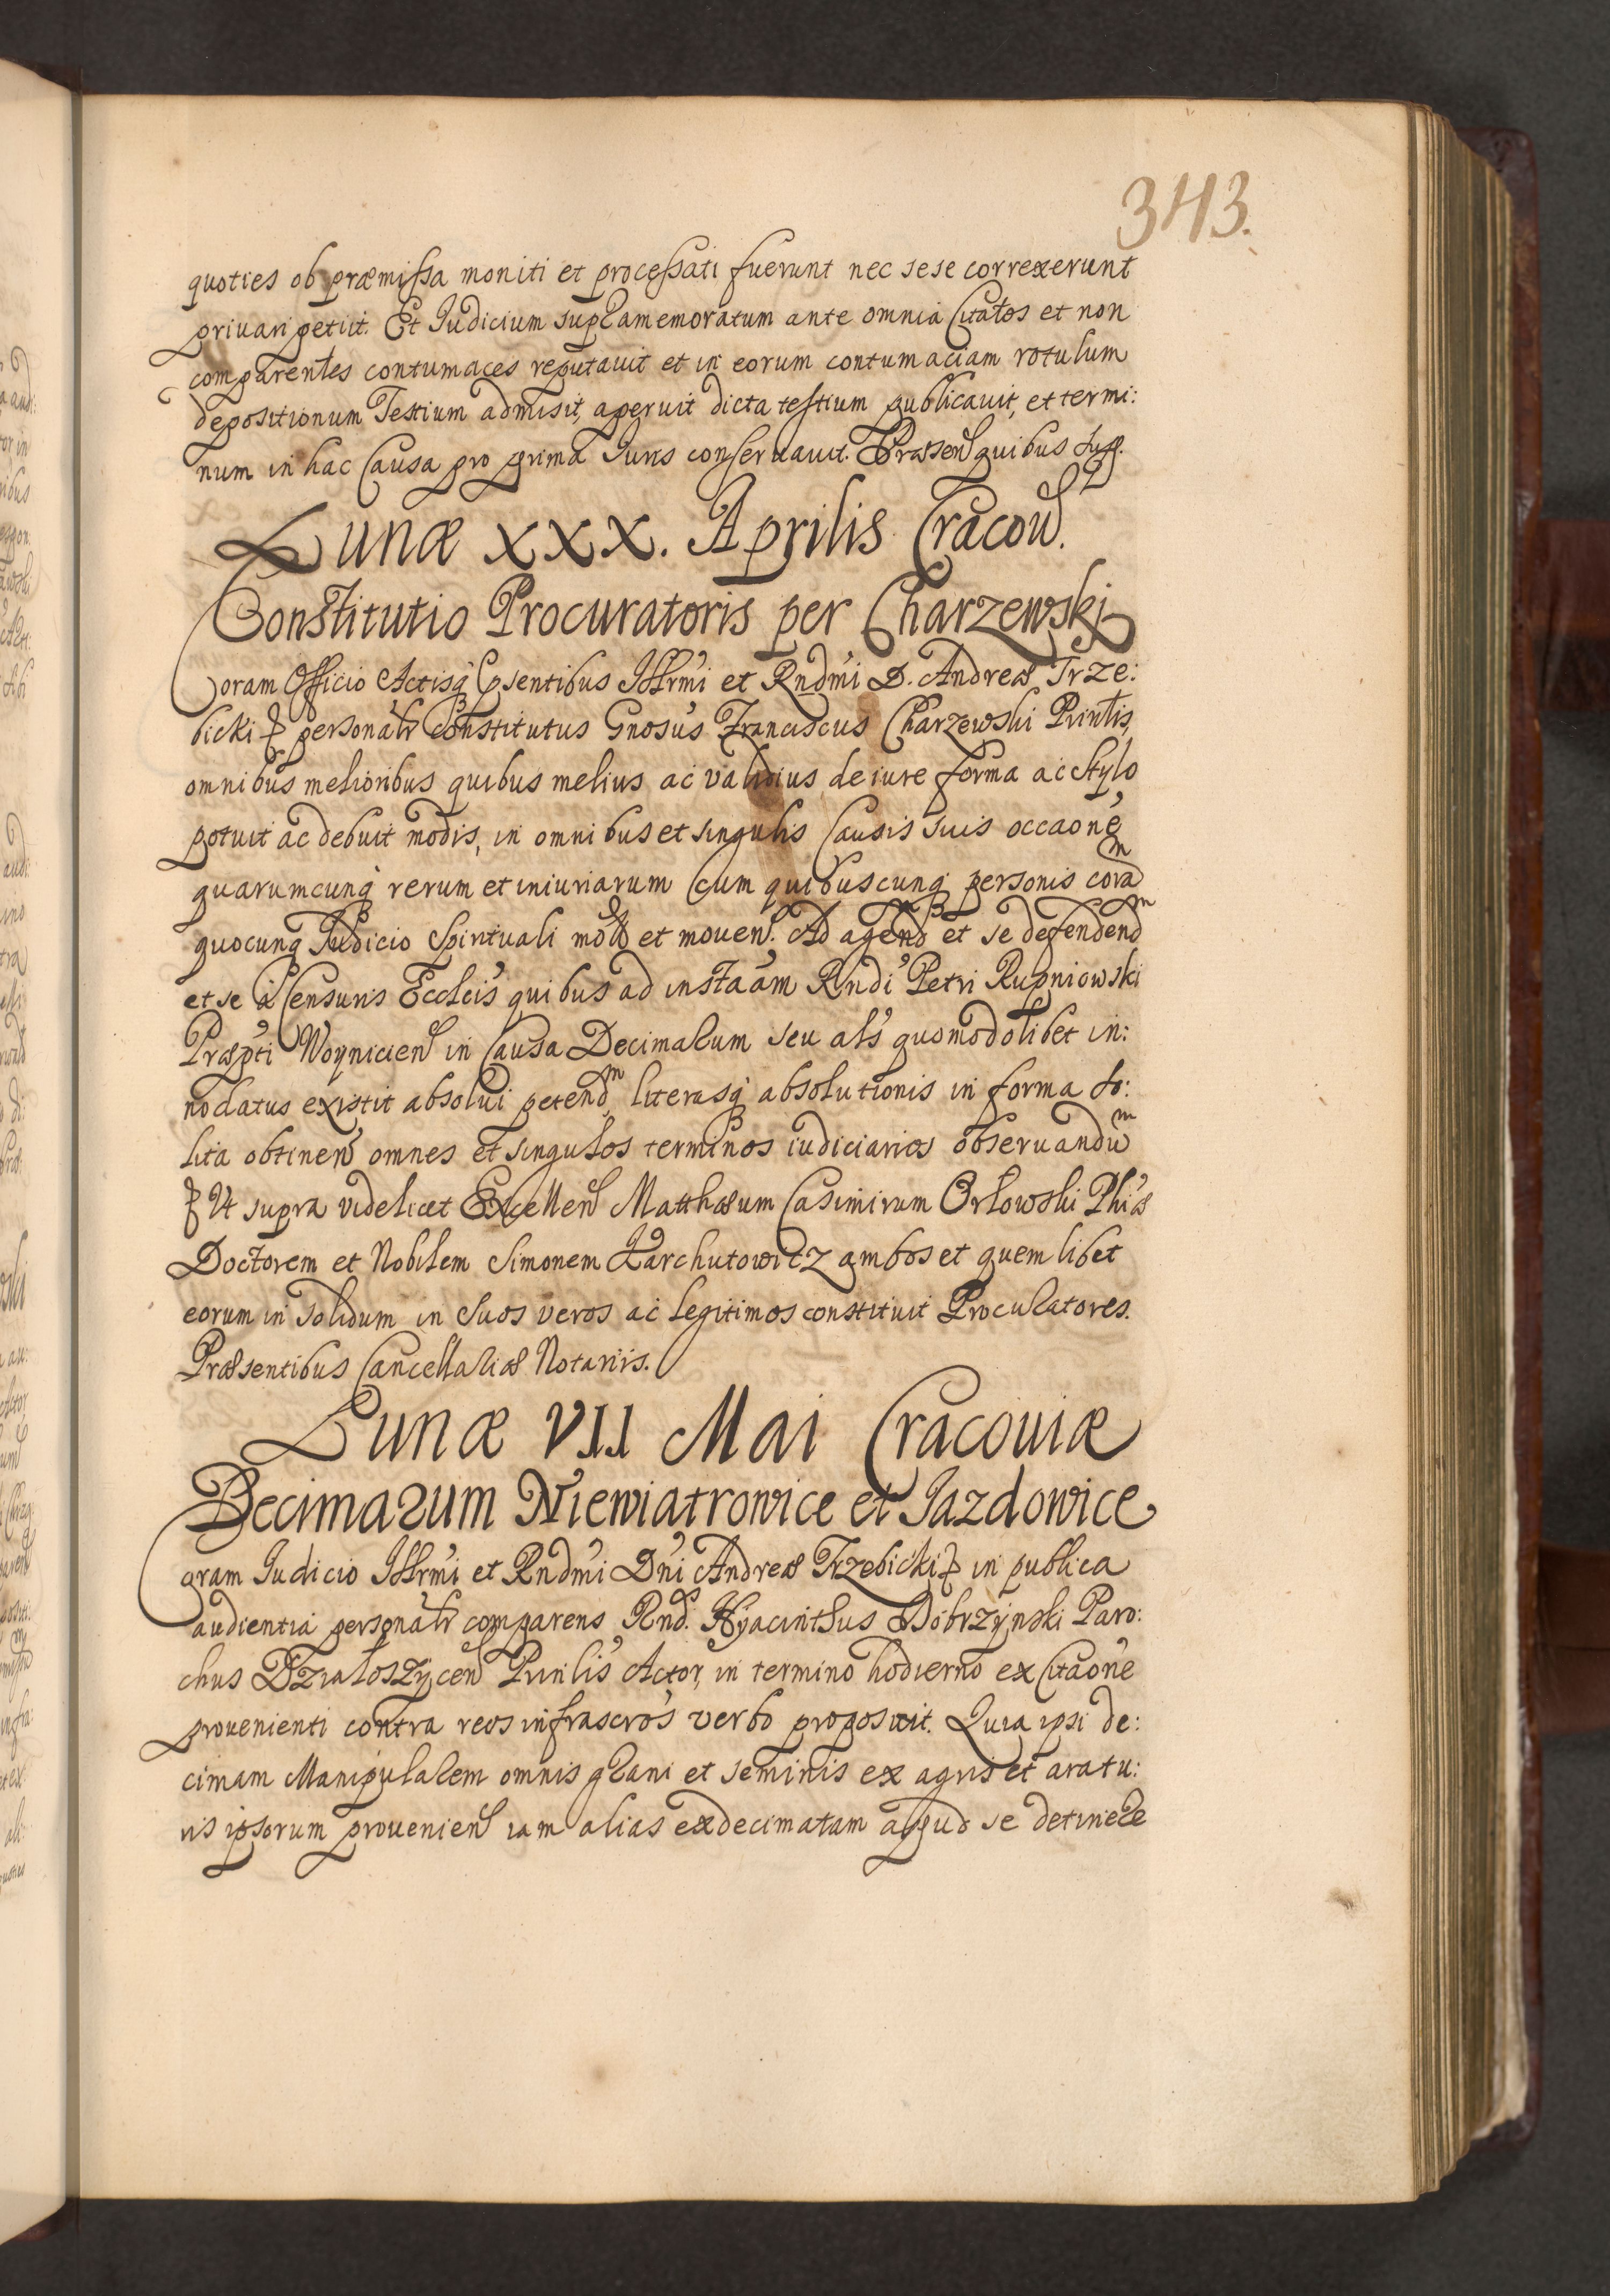 343.
quoties ob præmissa moniti et processati fuerunt nec sese correxerunt
privari petiit. Et Iudicium supramemoratum ante omnia Citatos et non
comparentes contumaces reputavit et in eorum contumaciam rotulum
depositionum Testium admisit, aperuit dicta testium publicavit, et termi:
num in hac Causa pro prima Iuris conservavit. Præsen quibus supp.
Lunæ XXX. Aprilis Cracov.
Constitutio Procuratoris per Charzewski
Coram Officio Actisq psentibus Illrmi et Rndmi D. Andreæ Trze:
bicki personalr Constitutus Gnosus Franciscus Charzewski Prinlis,
omnibus melioribus quibus melius ac validius de iure forma ac stylo
potuit ac debuit modis, in omnibus et singulis Causis suis occaone
quarumcunq rerum et iniuriarum Cum quibuscunq personis cora
quocunq Iudicio Spirituali et moven. Ad agend et se defendend
et se a Censuris Eccleis quibus ad instaam Rndi Petri Rupniowski
Præpti Woynicien in Causa Decimarum seu als quomodolibet in:
nodatus existit absolvi petend, literasq absolutionis in forma so:
lita obtinen omnes et singulos terminos iudiciarios observandu
Ut supra videlicet Excellen Matthæum Casimirum Orlowski Phiæ
Doctorem et Nobilem Simonem Karchutowicz ambos et quem libet
eorum in solidum in suos veros ac legitimos constituit Procuratores.
Præsentibus Cancellariæ Notariis.
Lunæ VII Mai Cracoviæ
Decimarum Niewiatrowice et Jazdowice
Coram Iudicio Illrmi et Rndmi Dni Andreæ Trzebicki in publica
audientia personalr comparens Rnd. Hyacinthus Dobrzynski Paro:
chus Dzialoszycen Prinlis Actor, in termino hodierno ex Citaone
provenienti contra reos infrascros verbo proposuit. Quia ipsi de:
cimam Manipularem omnis grani et seminis ex agris et aratu:
ris ipsorum provenien iam alias exdecimatam apud se detinere